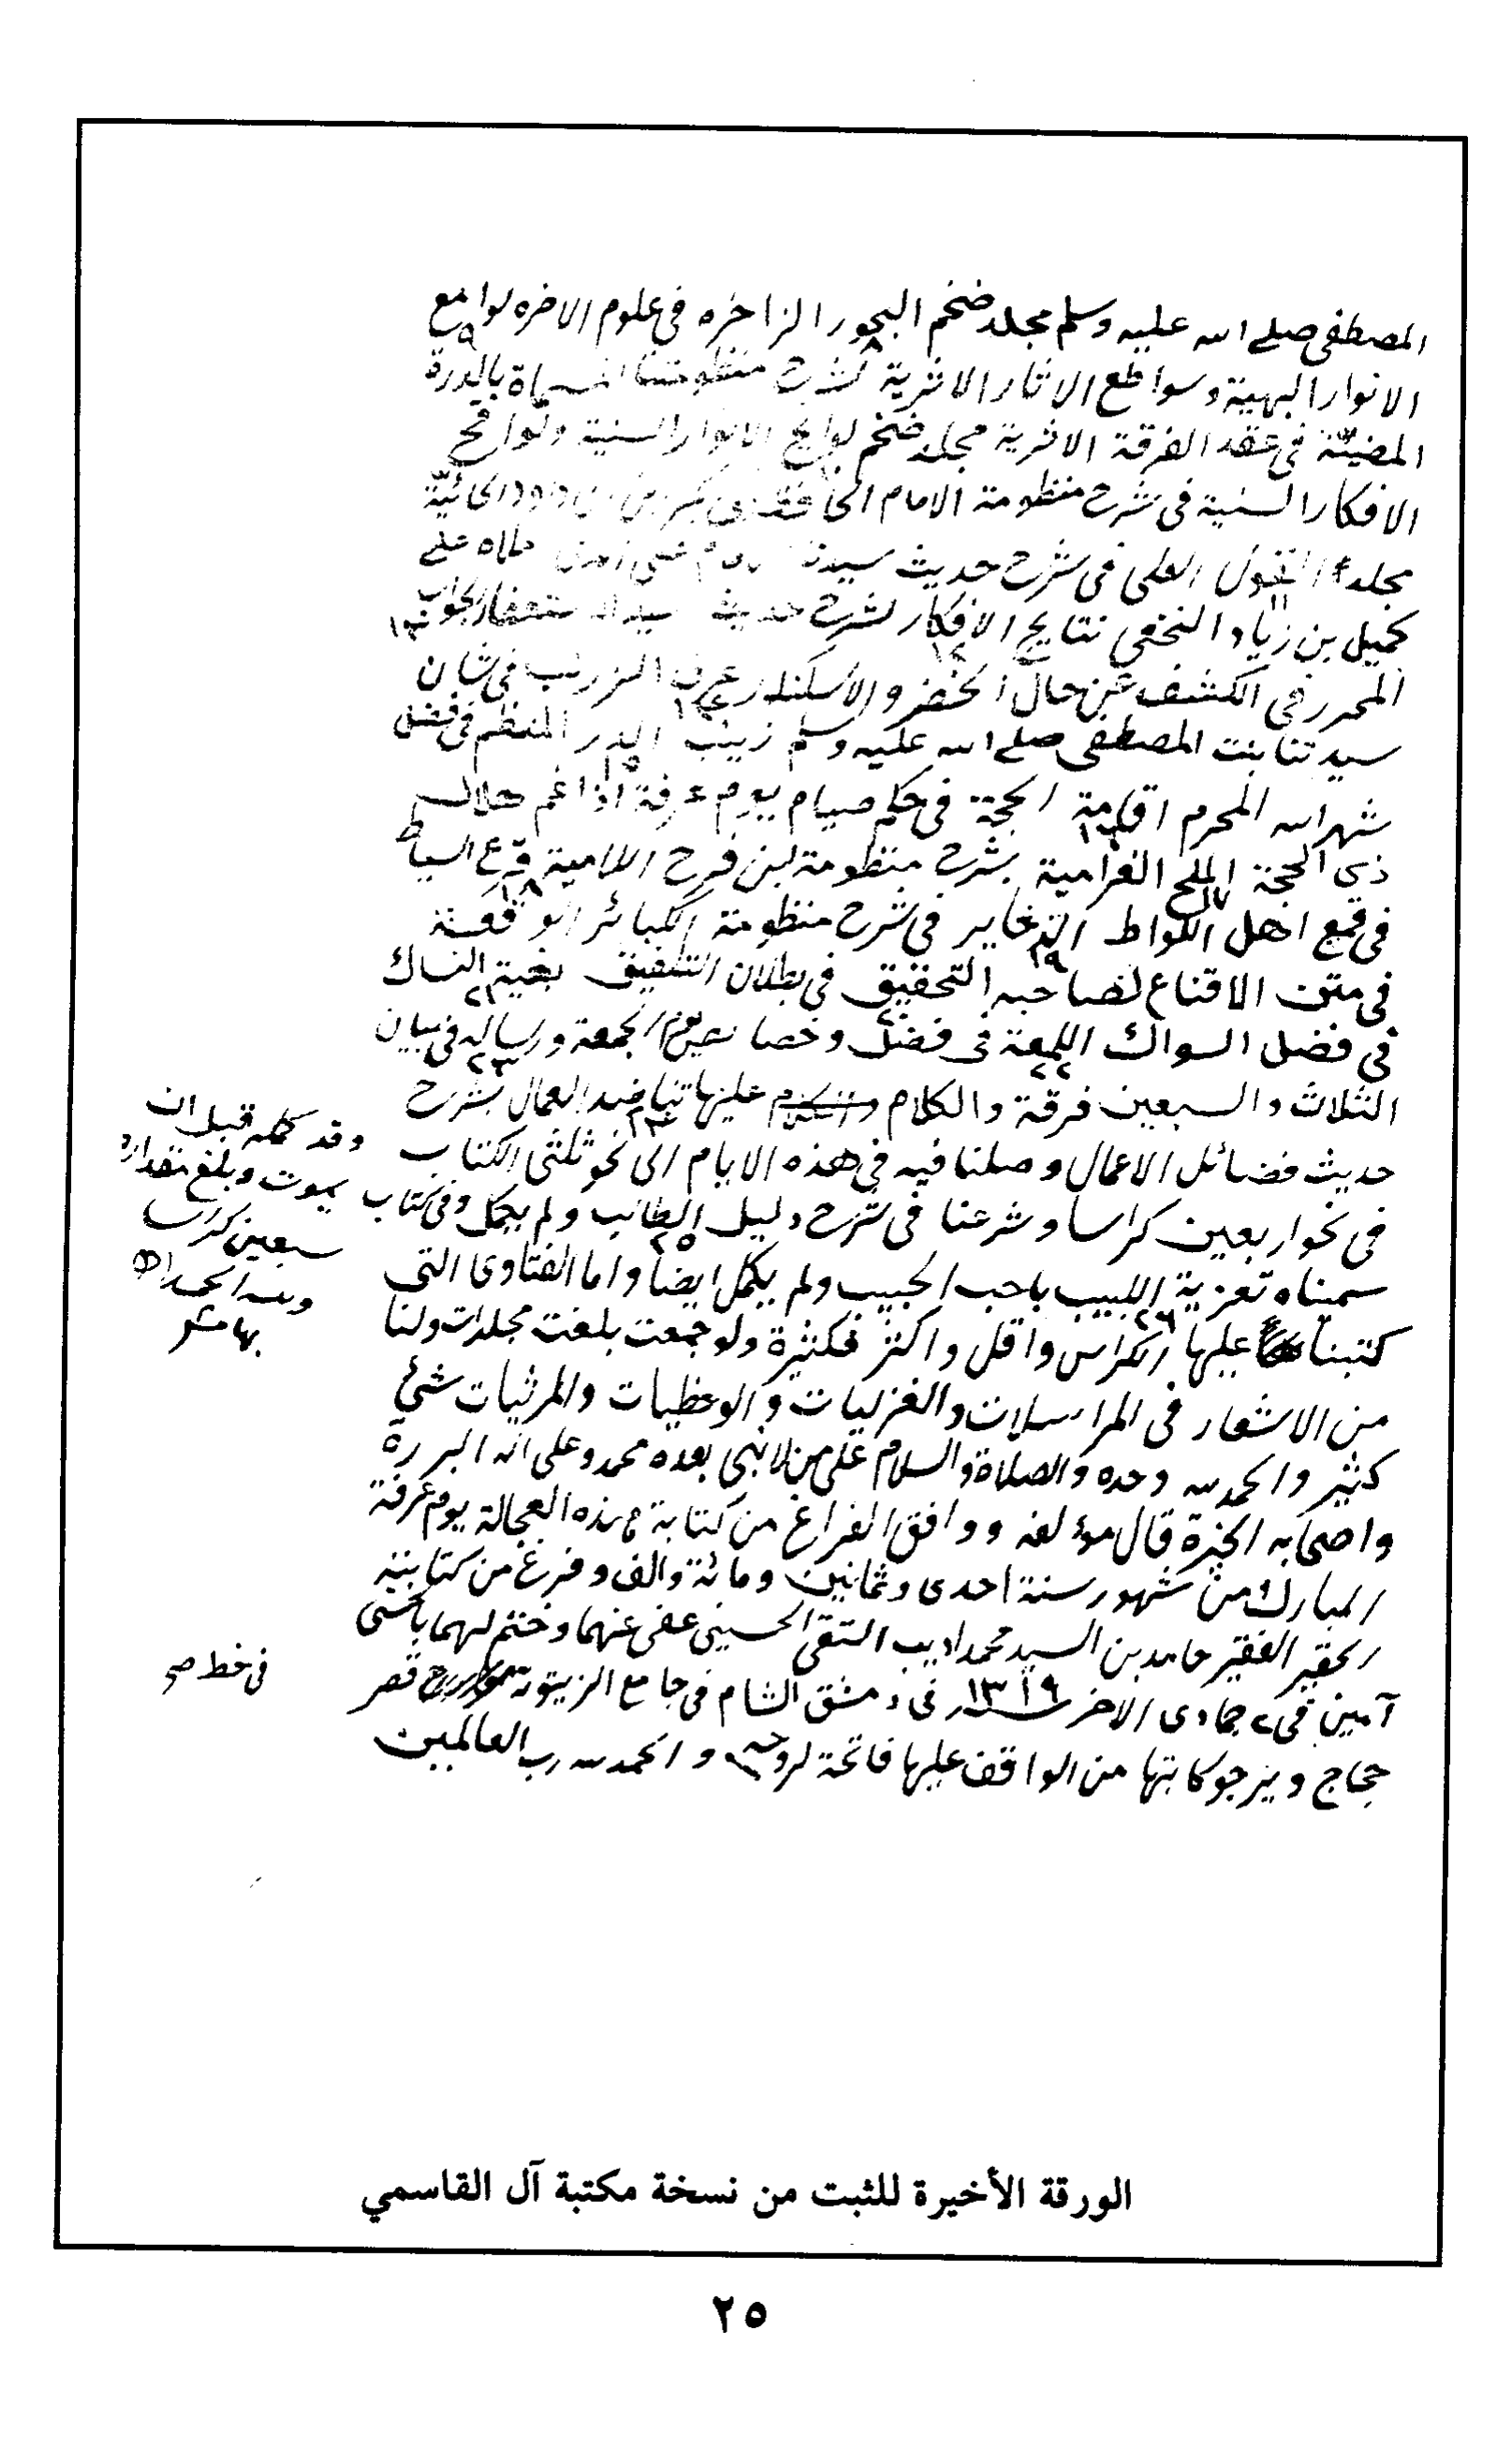 المصطفى صلى الله عليه وسلم مجلد ضخم البحور الزاخره في علوم الاخره لوامع
٨ ٩
الانوار البهية وسواطع الاثار الاثرية لشرح منظومتنا المسماة بالدرة
المضيئة في عقد الفرقة الاثرية مجلد ضخم لوايح الانوار السنية ولواقح
الافكار السنية في شرح منظومة الامام الحافظ ابي بكر بن ابي داود الحائية
مجلد القول العلي في شرح حديث سيدنا علي
كميل بن زياد النخعي نتايج الافكار لشرح حديث سيد الاستغفار الجواب
المحرر في الكشف عن حال الخضر والاسكندر عرف الزرنب في شان
سيدتنا بنت المصطفى صلى الله عليه وسلم زينب الدر المنظم في فضل
شهر الله المحرم اقامة الحجة في حكم صيام يوم عرفة اذا غم هلال
١٦
ذي الحجة الملح الغرامية بشرح منظومة لبن فرح اللامية قرع السياط
١٧ ١٨
في قمع اهل اللواط الذخاير في شرح منظومة الكبائر الواقعة
١٩
في متن الاقناع لصاحبه التحقيق في بطلان التلفيق بغية النساك
٢١
في فضل السواك اللمعة في فضل وخصايص يوم الجمعة ورسالة في بيان
٢٢ ٢٣
الثلاث والسبعين فرقة والكلام عليها تناضد العمال بشرح
حديث فضائل الاعمال وصلنا فيه في هذه الايام الى نحو ثلثي الكتاب
في نحو اربعين كراسا وشرعنا في شرح دليل الطالب ولم يكمل وفي كتاب
٢٥
سميناه تعزية اللبيب باحب الحبيب ولم يكمل ايضا واما الفتاوى التي
٢٦
كتبنا عليها الكراس واقل واكثر فكثيرة ولو جمعت بلغت مجلدات ولنا
من الاشعار في المراسلات والغزليات والوعظيات والمرثيات شيئ
كثير والحمد لله وحده والصلاة والسلام على من لا نبي بعده محمد وعلى اله البررة
واصحابه الخيرة قال مؤلفه ووافق الفراغ من كتابة هذه العجالة يوم عرفة
المبارك من شهور سنة احدى وثمانين ومائة والف وفرغ من كتابته
الحقير الفقير حامد بن السيد محمد اديب التقي الحسيني عفى عنهما وختم لهما بالحسنى
آمين في ٢ جمادى الاخر سنة ١٣١٩ في دمشق الشام في جامع الزيتونة قصر
حجاج ويرجو كاتبها من الواقف عليها فاتحة لروحه والحمد لله رب العالمين
وقد كمله قبل ان
يموت وبلغ مقداره
سبعين كراسا
ولله الحمد اه
بهامش
في خط
الورقة الأخيرة للثبت من نسخة مكتبة آل القاسمي
٢٥